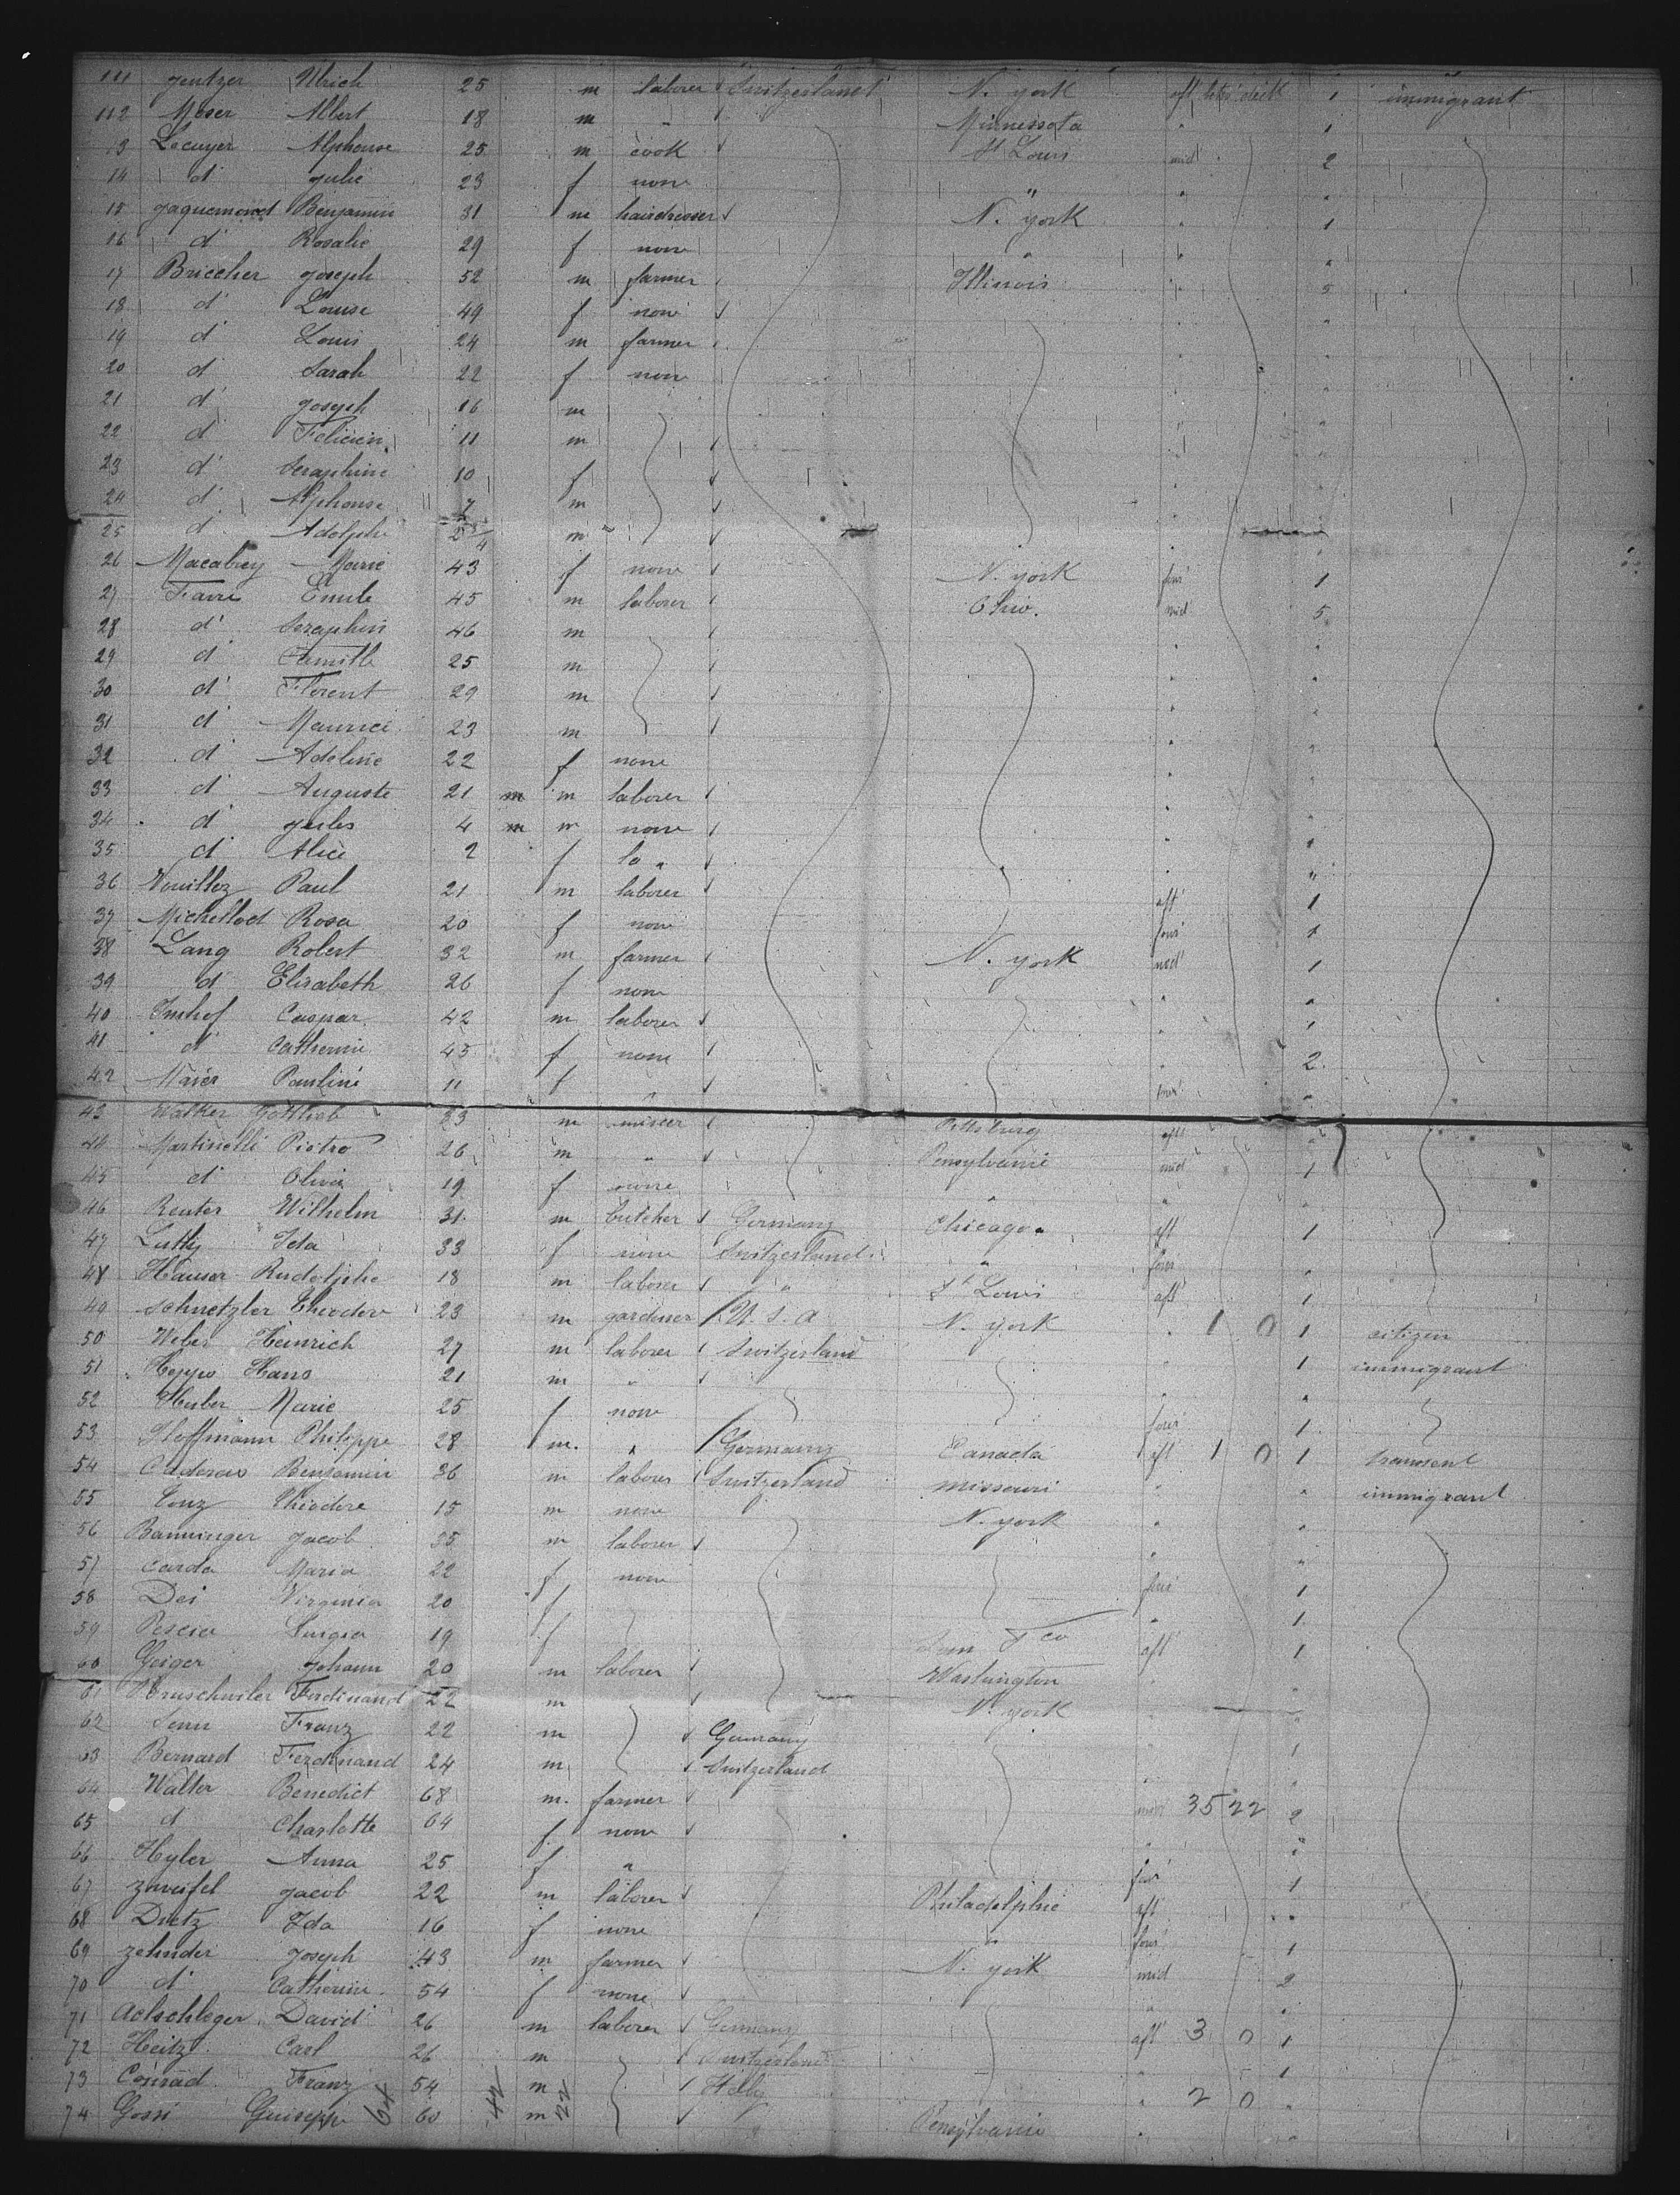 111 Gentzer Ulrich 25 m laborer Switzerland N. york aft betw deck 1 immigrant
112 Moser Albert 18 m " Minnessota " 1
13 Lecuyer Alphonse 25 m cook St Louis mid 2
14 d° Julie 23 f none " " "
15 Jaquemond Benjamin 31 m hairdresser N. york " 1
16 d° Rosalie 29 f none " " "
17 Bricher Joseph 52 m farmer Illinois " 5
18 d° Louise 49 f none " "
19 d° Louis 24 m farmer " "
20 d° Sarah 22 f none " "
21 d° Joseph 16 m " "
22 d° Felicien 11 m " "
23 d° Seraphine 10 f " "
24 d° Alphonse 7 m " "
25 d° Adolphe m " "
26 Macabrey Marie 43 f none N. york four 1
27 Favre Emile 45 m laborer Ohio. mid 5
28 d° Seraphin 46 m " "
29 d° Camille 25 m " "
30 d° Florent 29 m " "
31 d° Maurice 23 m " "
32 d° Adeline 22 f none " "
33 d° Auguste 21 m m laborer " "
34 d° Jules 4 m m none " "
35 d° Alice 2 f la " "
36 Vouilloz Paul 21 m laborer aft 1
37 Michellod Rosa 20 f none four 1
38 Lang Robert 32 m farmer N. york mid 1
39 d° Elisabeth 26 f none " "
40 Imhof Caspar 42 m laborer " 1
41 d° Catherine 45 f none " 2
42 Maier Pauline 11 f " four "
43 Walker Gottlieb 33 m miner Pittsburg aft "
44 Martinelli Pietro 26 m " Pensylvanie mid 1
45 d° Olivia 19 f none " " "
46 Reuter Wilhelm 31 m butcher Germany Chicago aft 1
47 Luthy Ida 33 f none Switzerland " four "
48 Hauser Rudolphe 18 m laborer " St Louis aft 1
49 Schnetzler Theodore 23 m gardener U. S. A N. york " 1 0 1 citizen
50 Weber Heinrich 27 m laborer Switzerland " 1 immigrant
51 Hans 21 m " " "
52 Huber Marie 25 f none four 1
53 Hoffmann Philippe 28 m. " Germany Canada aft 1 0 1 transient
54 Benjamin 36 m laborer Switzerland missouri " " immigrant
55 Theodore 15 m none N. york " "
56 Banninger Jacob 35 m laborer " "
57 Carda Maria 22 f none four 1
58 Dei Virginia 20 f " 1
59 Pescia Luigia 19 f aft 1
60 Geiger Johann 20 m laborer Washington "
61 Ferdinand 22 m N. york "
62 Senn Franz 22 m Germany " 1
63 Bernard Ferdinand 24 m Switzerland " "
64 Walter Benedict 68 m. farmer mid 35 22 2
65 d° Charlotte 64 f none " "
66 Hyler Anna 25 f " four 1
67 Zweifel Jacob 22 m laborer Philadelphie aft "
68 Dietz Ida 16 f none " four 1
69 Zehnder Joseph 43 m farmer N. york mid 2
70 d° Catherine 54 f none " "
71 Aelschleger David 26 m laborer Germany aft 3 0 1
72 Heitz Carl 26 m Switzerland " 1
73 Conrad Franz 54 m Itally " 2 0 "
74 Gossi Guiseppe 60 m " Pensylvanie " "
64 42 22